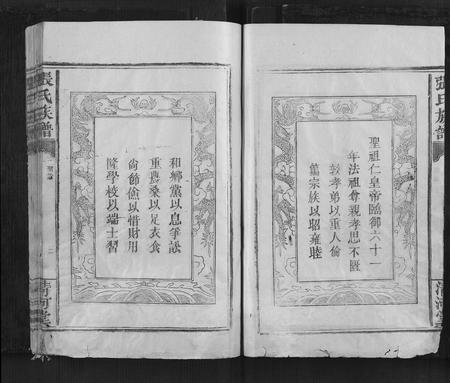 聖祖仁皇帝臨御六十一
年法祖尊親孝思不匱
敦孝弟以重人倫
篤宗族以昭雍睦
張氏族譜
清河堂
和鄉黨以息爭訟
重農桑以足衣食
尚節儉以惜財用
隆學校以端士習
張氏族譜
聖諭
二
清河堂